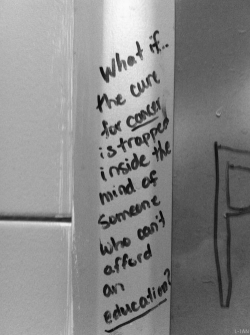 What if...
the cure
for cancer
is trapped
inside the
mind of
someone
who can't
afford
an
education?